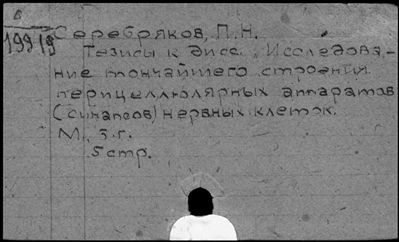 Б
19919
Серебряков, П.Н.
Тезисы к дисс. Исследова-
ние тончайшего строения
перицеллюлярных аппаратов
(синапсов) нервных клеток.
М., Б.г.
5 стр.